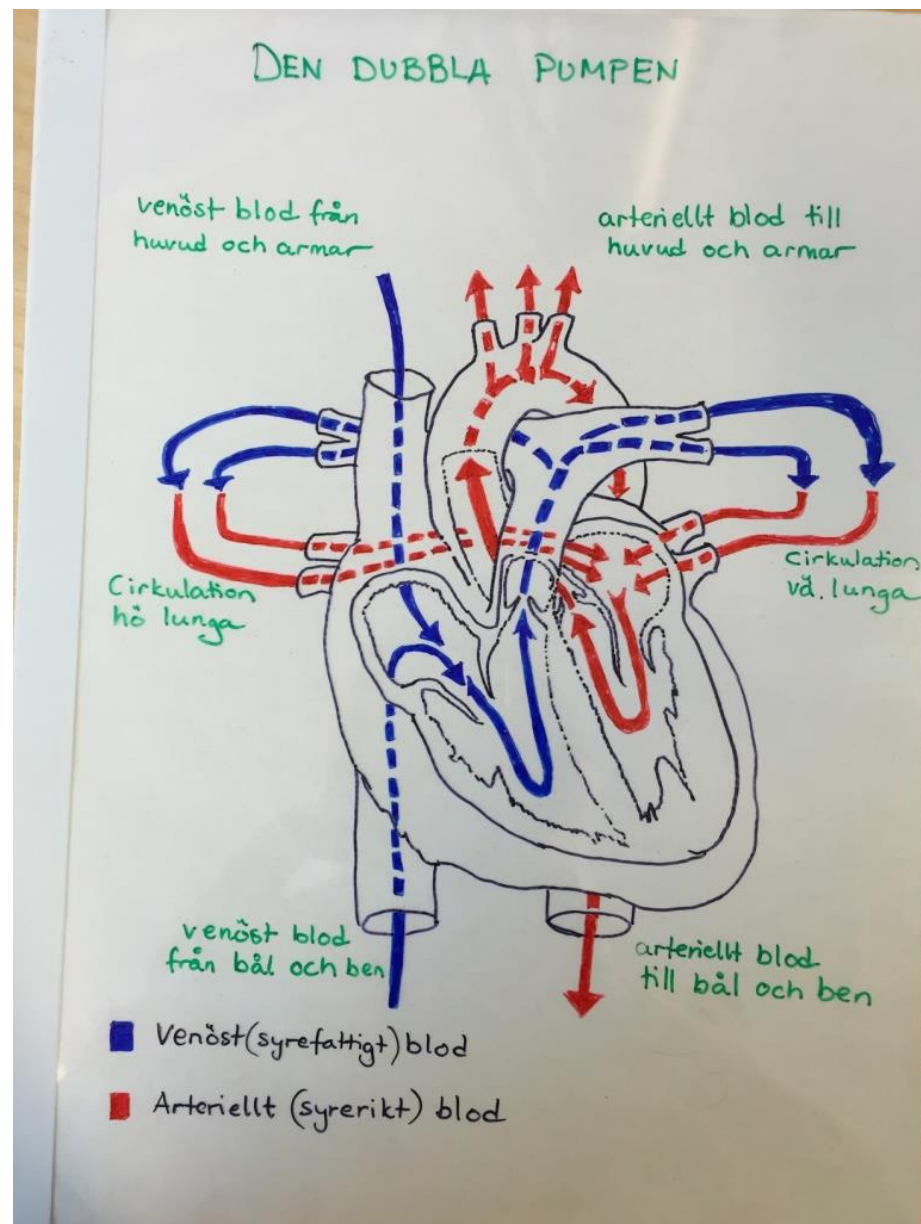 DEN DUBBLA PUMPEN
venöst blod från
huvud och armar
arteriellt blod till
huvud och armar
Cirkulation
hö lunga
Cirkulation
vä. lunga
venöst blod
från bål och ben
arteriellt blod
till bål och ben
Venöst (syrefattigt) blod
Arteriellt (syrerikt) blod